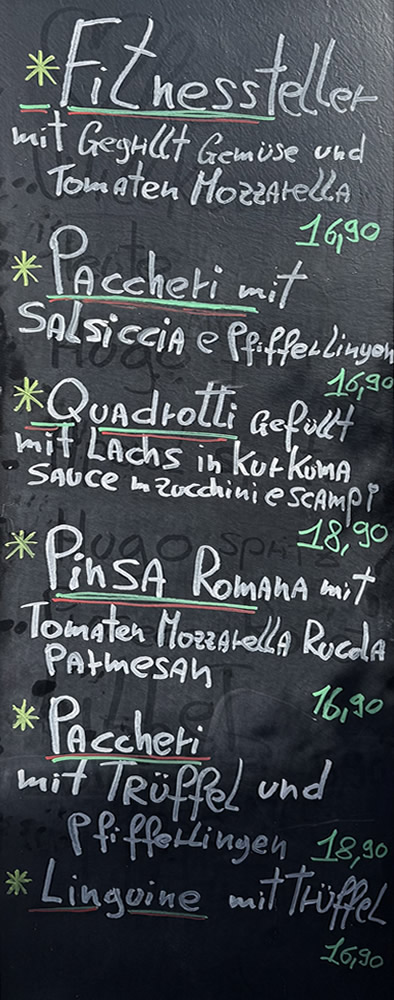 Fitnessteller
mit Gegrillt Gemüse und
Tomaten Mozzarella
16,90
Paccheri mit
Salsiccia e Pfifferlingen
16,90
Quadrotti gefüllt
mit Lachs in Kurkuma
Sauce m Zucchini e Scampi
18,90
Pinsa Romana mit
Tomaten Mozzarella Rucola
Parmesan
16,90
Paccheri
mit Trüffel und
Pfifferlingen 18,90
Linguine mit Trüffel
16,90